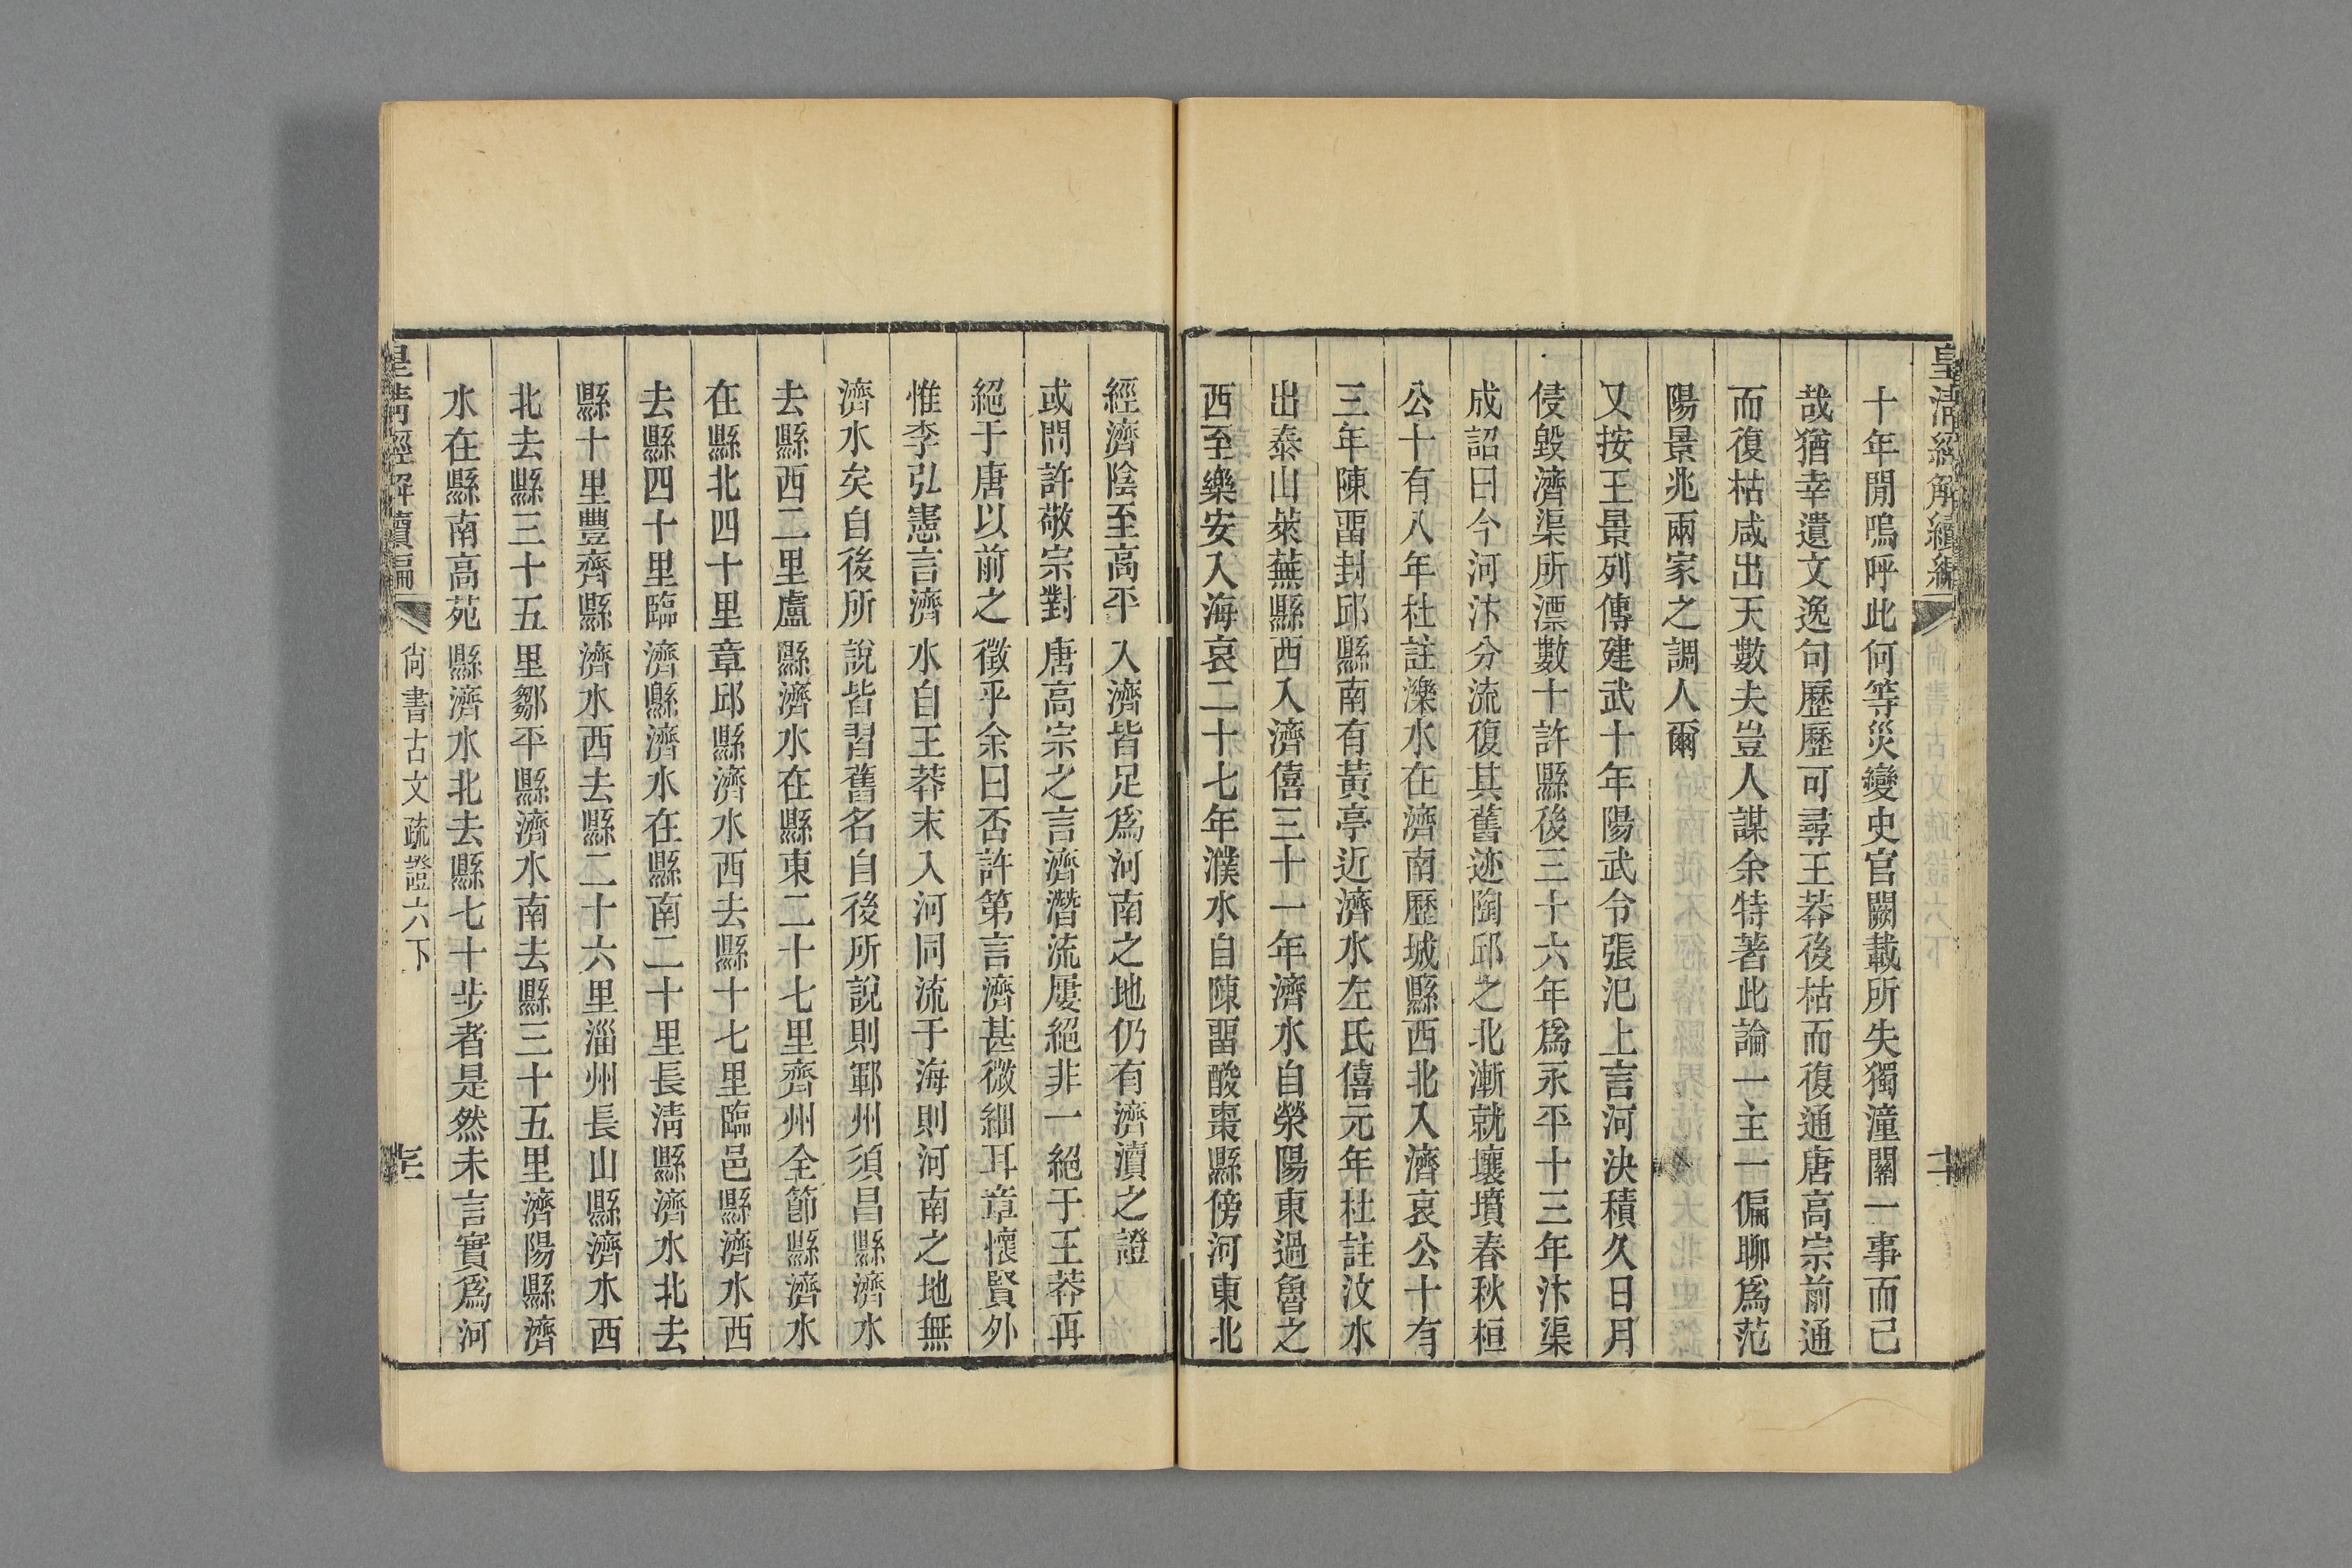 皇清經解續編
十年閒嗚呼此何等災變史官闕載所失獨潼關一事而已
哉猶幸遺文逸句歷歷可尋王莽後枯而復通唐高宗前通
而復枯咸出天數夫豈人謀余特著此論一主一偏聊爲范
陽景兆兩家之調人爾
又按王景列傳建武十年陽武令張汜上言河決積久日月
侵毀濟渠所漂數十許縣後三十六年爲永平十三年汴渠
成詔曰今河汴分流復其舊迹陶邱之北漸就壤墳春秋桓
公十有八年杜註濼水在濟南歷城縣西北入濟哀公十有
三年陳畱封邱縣南有黃亭近濟水左氏僖元年杜註汶水
出泰山萊蕪縣西入濟僖三十一年濟水自滎陽東過魯之
西至樂安入海哀二十七年濮水自陳畱酸棗縣傍河東北
經濟陰至高平入濟皆足爲河南之地仍有濟瀆之證
或問許敬宗對唐高宗之言濟潛流屢絕非一絕于王莽再
絕于唐以前之徵乎余曰否許第言濟甚微細耳章懷賢外
惟李弘憲言濟水自王莽末入河同流于海則河南之地無
濟水矣自後所說皆習舊名自後所說則鄆州須昌縣濟水
去縣西二里盧縣濟水在縣東二十七里齊州全節縣濟水
在縣北四十里章邱縣濟水西去縣十七里臨邑縣濟水西
去縣四十里臨濟縣濟水在縣南二十里長淸縣濟水北去
縣十里豐齊縣濟水西去縣二十六里淄州長山縣濟水西
北去縣三十五里鄒平縣濟水南去縣三十五里濟陽縣濟
水在縣南高苑縣濟水北去縣七十步者是然未言實爲河
皇清經解續編 尙書古文疏證六下